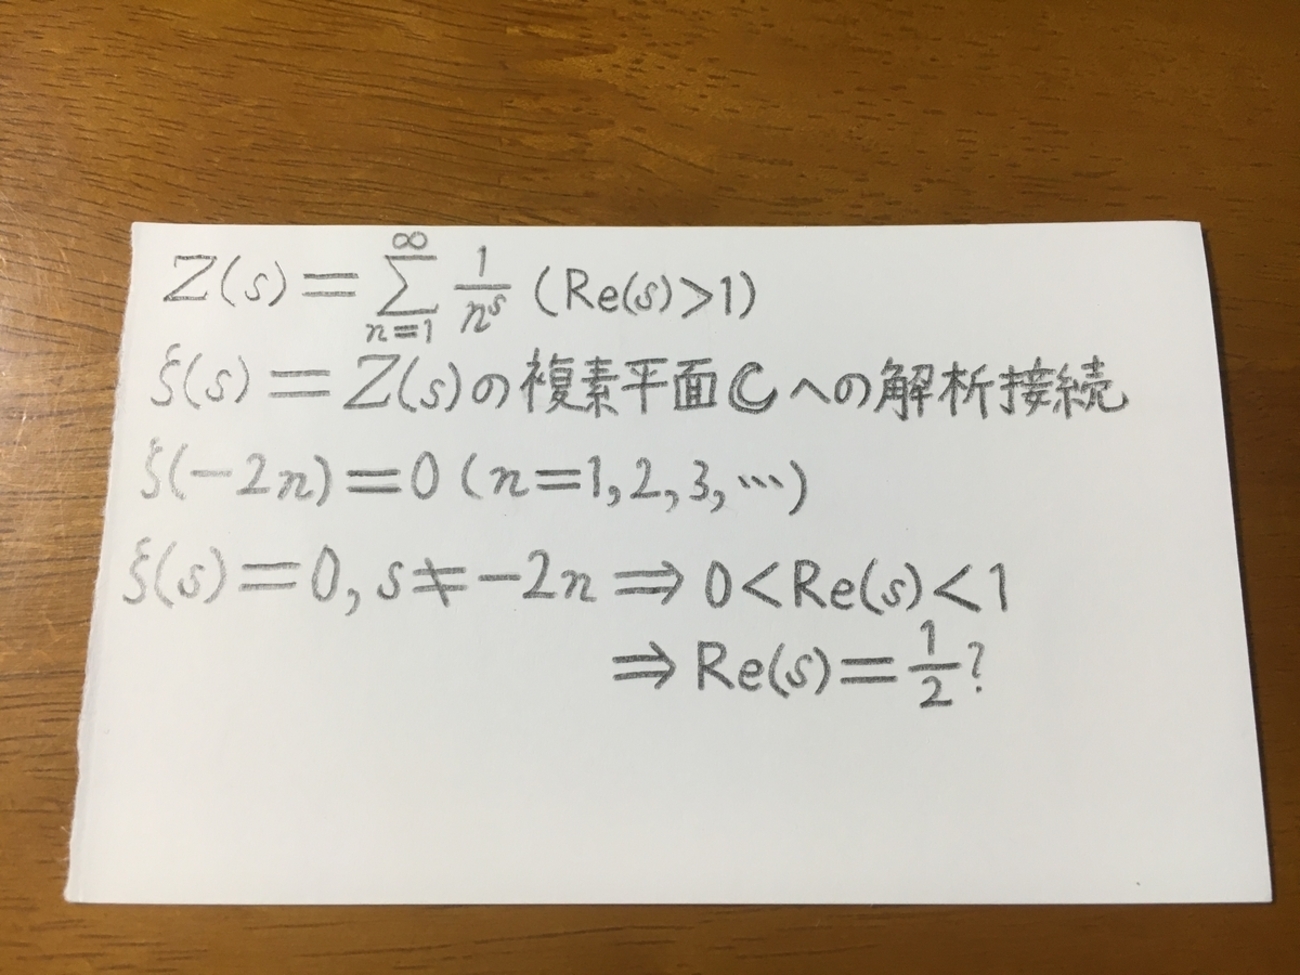 Z(s) = ∑_{n=1}^{∞} 1/n^s (Re(s)>1)
ξ(s) = Z(s)の複素平面ℂへの解析接続
ξ(-2n) = 0 (n=1,2,3,…)
ξ(s) = 0, s ≠ -2n ⇒ 0<Re(s)<1
⇒ Re(s) = 1/2?